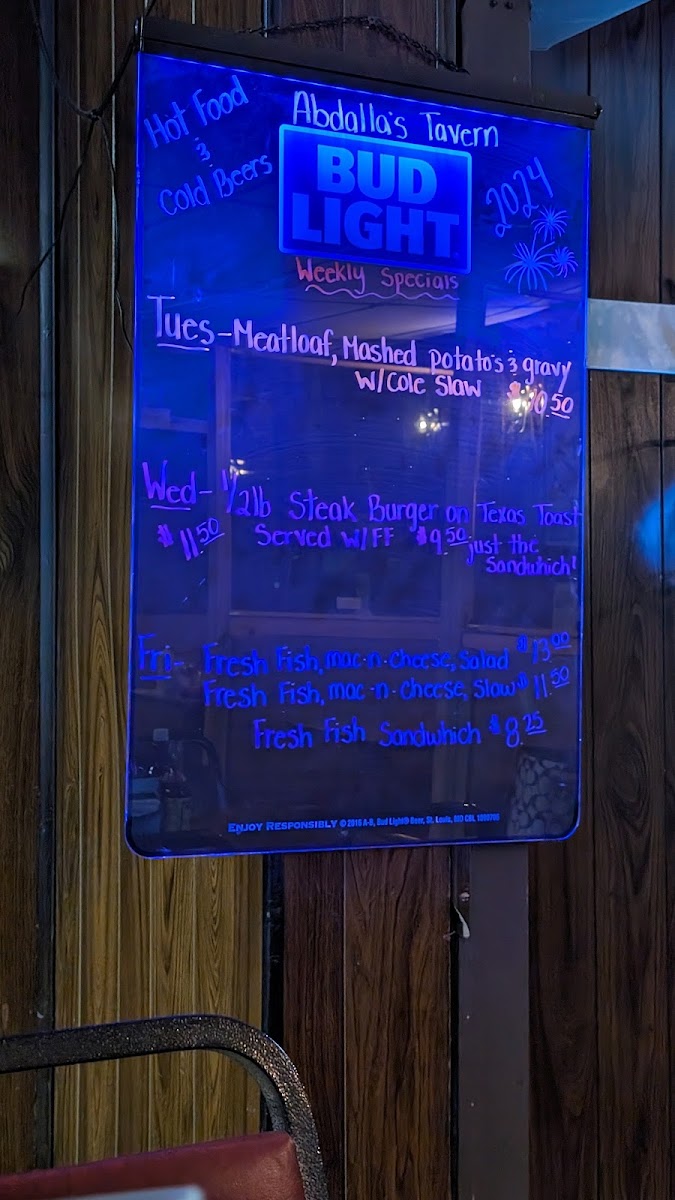 Hot Food
&
Cold Beers
Abdalla's Tavern
BUD
LIGHT
2024
Weekly Specials
Tues-Meatloaf, Mashed potato's & gravy
w/cole slaw $10.50
Wed- 1/2lb Steak Burger on Texas Toast
$11.50 Served w/FF $9.50 just the
Sandwhich!
Fri- Fresh Fish, mac-n-cheese, Salad $13.00
Fresh Fish, mac-n-cheese, Slaw $11.50
Fresh Fish Sandwhich $8.25
ENJOY RESPONSIBLY © 2016 A-B, Bud Light® Beer, St. Louis, MO